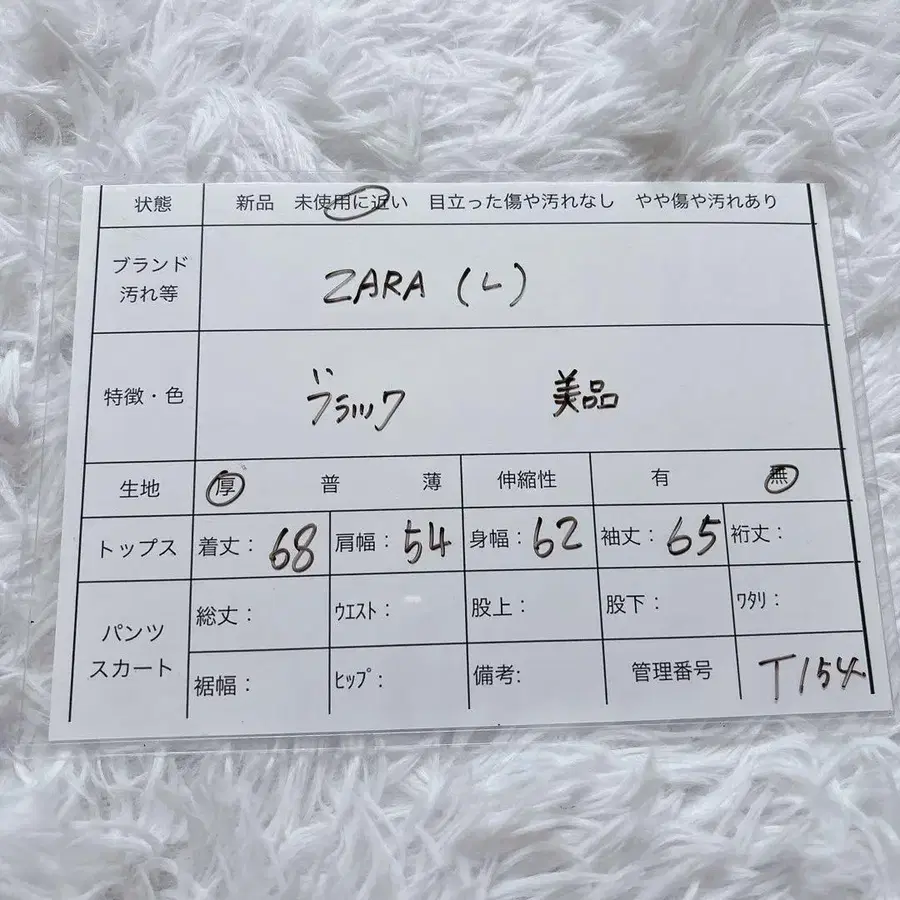 状態 新品 未使用に近い 目立った傷や汚れなし やや傷や汚れあり
ブランド
汚れ等
ZARA (L)
特徴・色 ブラック 美品
生地 厚 普 薄 伸縮性 有 無
トップス 着丈: 68 肩幅: 54 身幅: 62 袖丈: 65 裄丈:
パンツ
スカート
総丈: ウエスト: 股上: 股下: ワタリ:
裾幅: ヒップ: 備考: 管理番号 T154